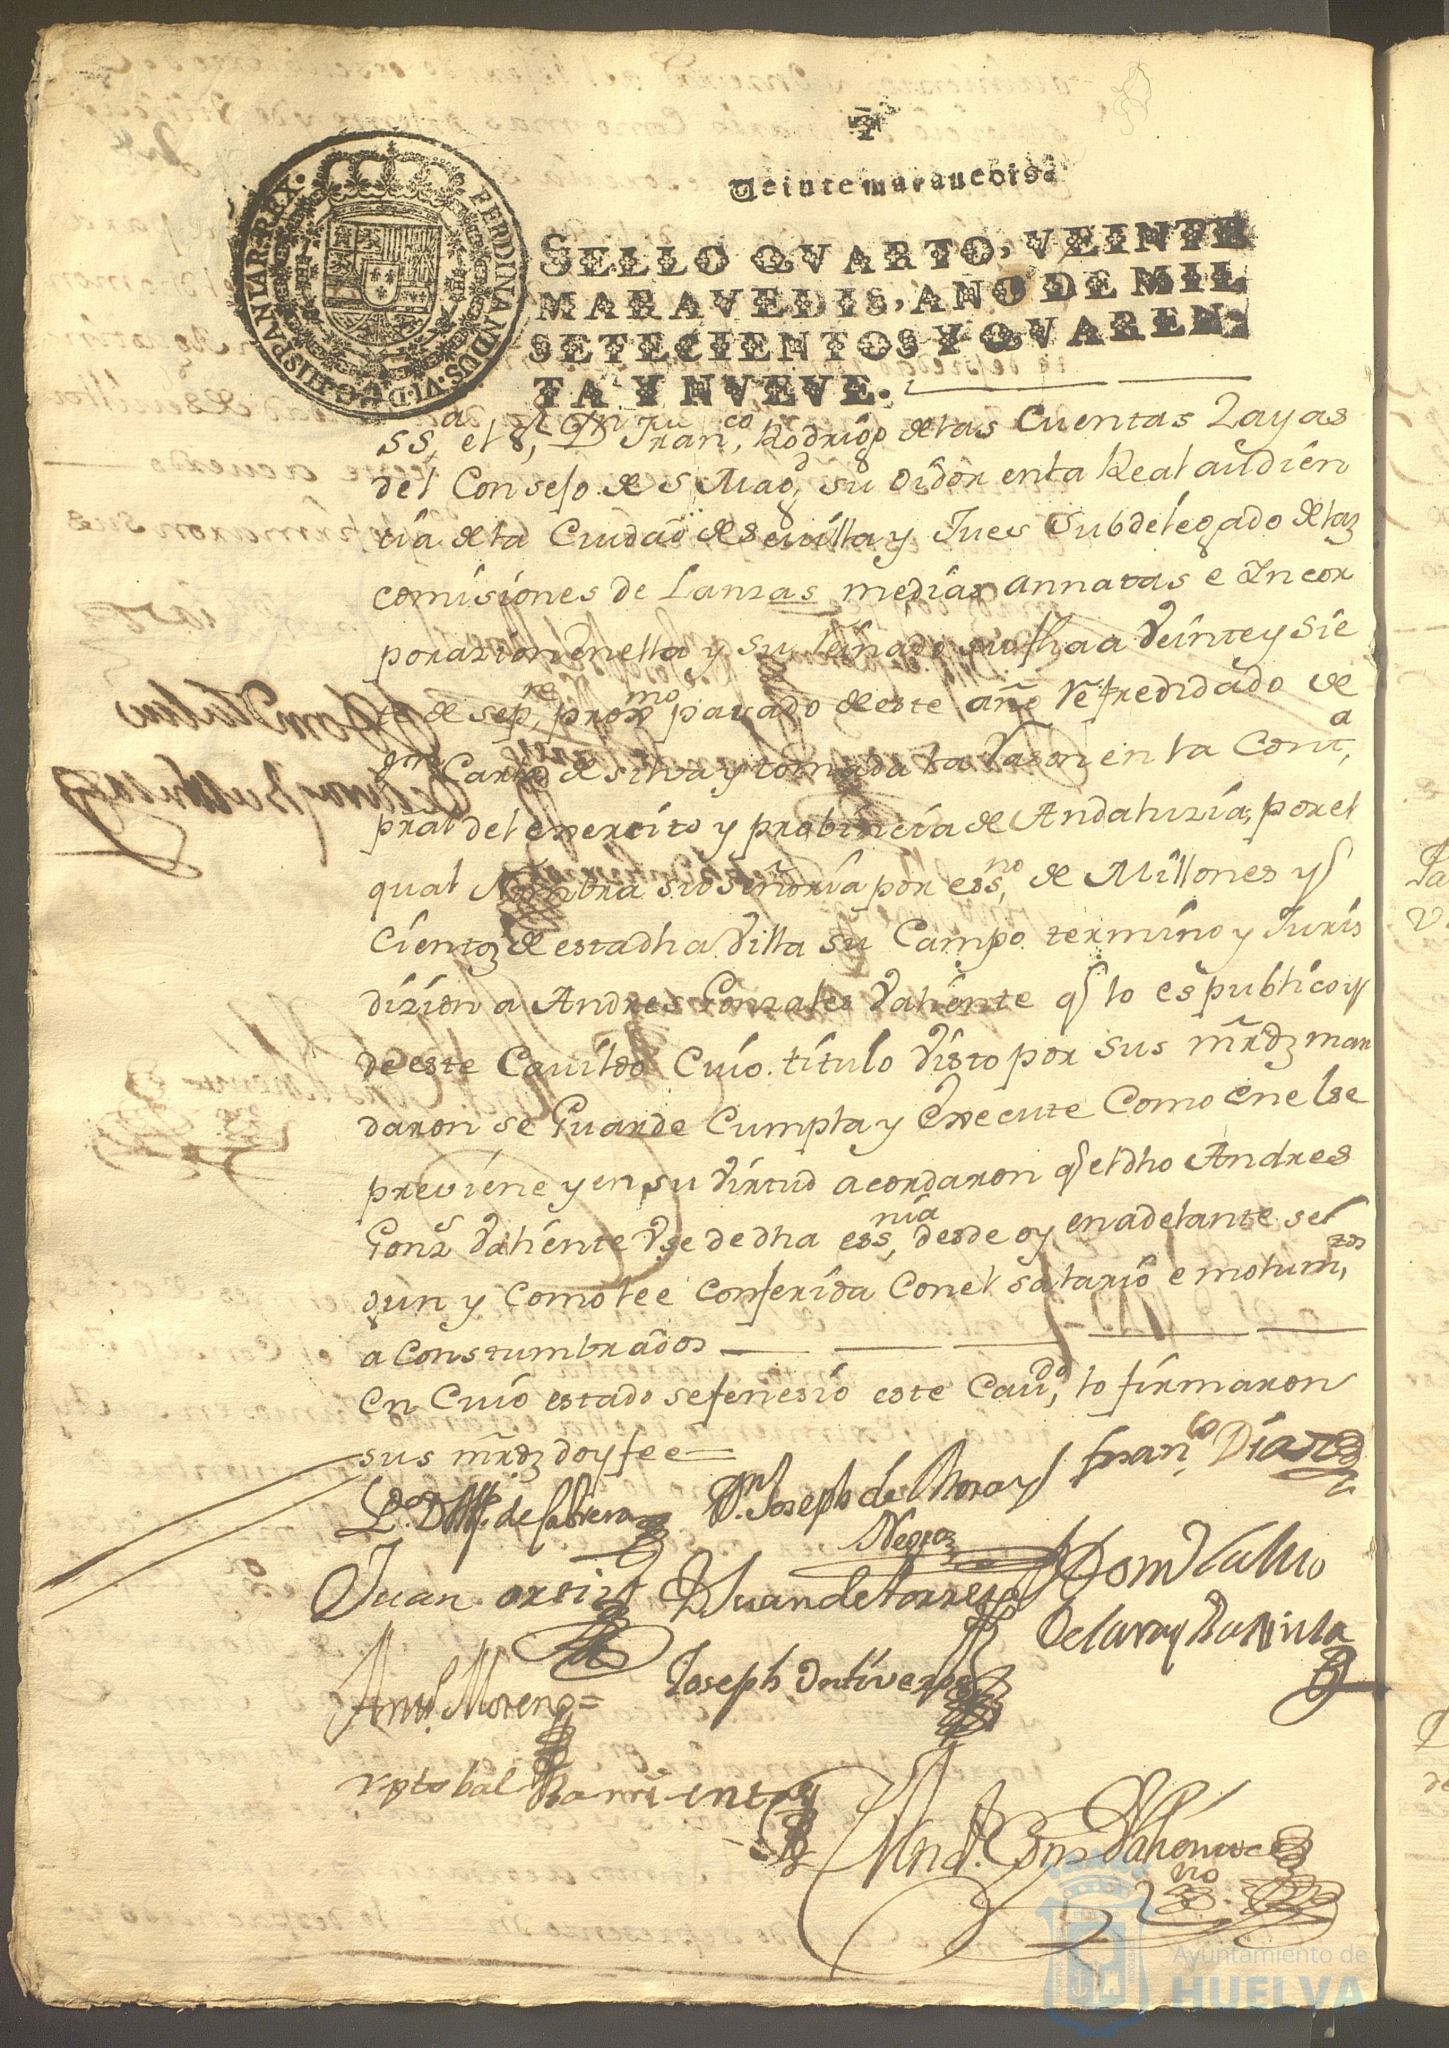 Veinte maravedis.
SELLO QVARTO, VEINTE
MARAVEDIS, AÑO DE MIL
SETECIENTOS Y QVAREN-
TA Y NVEVE.
FERDINANDUS.VI.D.G.HISPANIAR.REX.
ssª, el S, Dn Franco, Rodrig de las Cuentas Zayas
del Consejo de S Magd, su oidor en la Real audien
cia de la Ciudad de Sevilla y Jues Subdelegado de laz
comisiones de Lanzas medias annatas e Incor
porazion en ella y su Reinado su fha a Veinte y sie
te de sepre, proxmo pasado de este año Refredidado de
Jph Carlos de silva y tomada la Rason en la Conta,
pral del exercito y probincia de Andaluzia, por el
qual Nombra su señoria por essno, de Millones y
Cientoz de esta dha Villa su Campo termino y Juris
dizion a Andres Gonzales Valiente q lo es publico y
de este Cavildo Cuio titulo Visto por sus mrdz man
daron se Guarde Cumpla y Execute Como en el se
previene y en su Virtud acordaron q el dho Andres
Gonz Valiente Vse de dha essnia, desde oy en adelante se
gun y Como le e Conferida Con el salario e molumtos,
a Constumbrados
En Cuio estado se fenesio este Cavdo, lo firmaron
sus mrdz doy fee=
Ldo. D. de Cabrera Dn. Joseph de Mora y Franco. Diaz
Negro
Juan ortiz Juan de torres Dom Valerio
Antt. Moreno= Joseph Ontiveros
xptobal Barrientos
And. Gonz Valiente
no
Ayuntamiento de
HUELVA